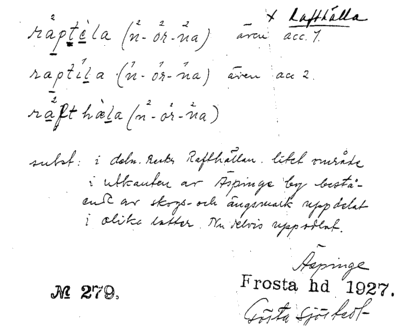 x Rafthälla
råptèla (n-ór-na) även acc. 1.
raptíla (n-ór-na) även acc 2.
råfthæla (n-ór-na)
subst: i deln. Rafthällan. litet område
i utkanten av Äspinge by bestå-
ende av skogs- och ängsmark uppdelat
i olika lotter. Nu delvis uppodlat.
Äspinge
№ 279. Frosta hd 1927.
Gösta Sjöstedt